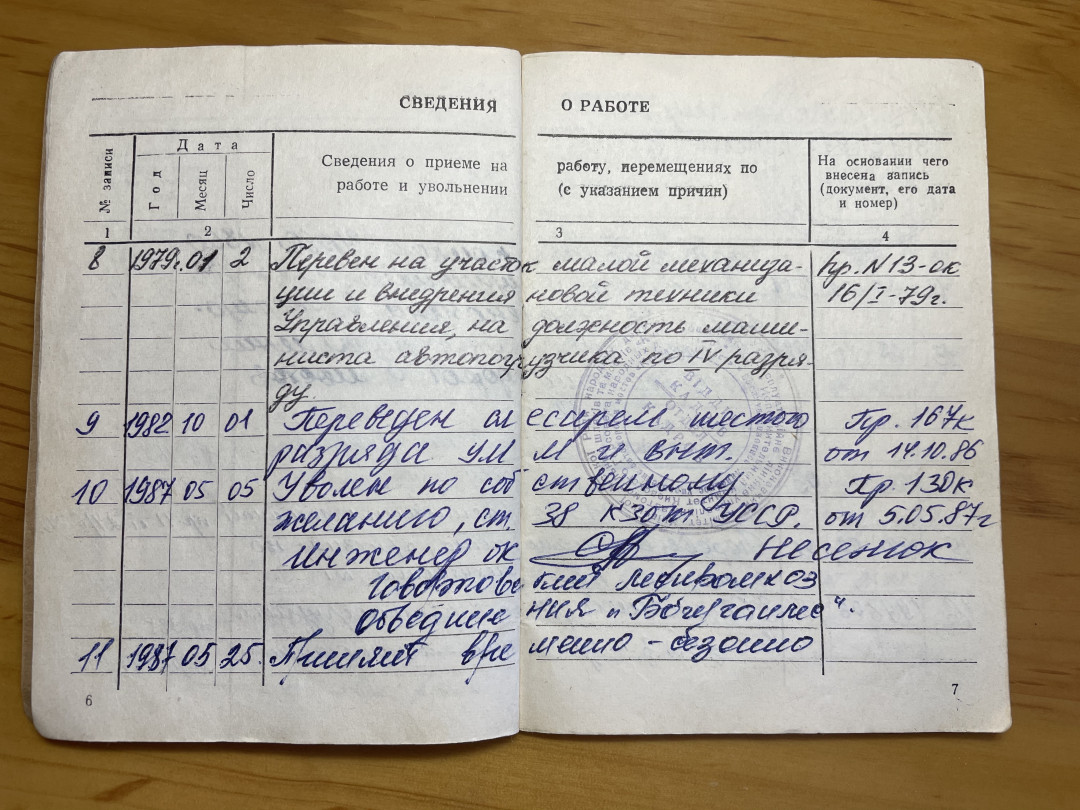 СВЕДЕНИЯ О РАБОТЕ
№ записи
Дата
Год
Месяц
Число
Сведения о приеме на работу, перемещениях по
работе и увольнении (с указанием причин)
На основании чего
внесена запись
(документ, его дата
и номер)
1 2 3 4
8 1979г. 01 2 Перевен на участок малой механиза- Пр. N 13-ок
ции и внедрения новой техники 16/I-79г.
Управления, на должность маши-
ниста автопогрузчика по IV разря-
ду.
9 1982 10 01 Переведен слесарем шестого Пр. 167к
разряда УМ М и внт. от 14.10.86
10 1987 05 05 Уволен по собственному Пр. 130к
желанию, ст. 38 КЗОТ УССР. от 5.05.87г
инженер ок Несенюк
объедине ния
11 1987 05 25. Принят
6
7